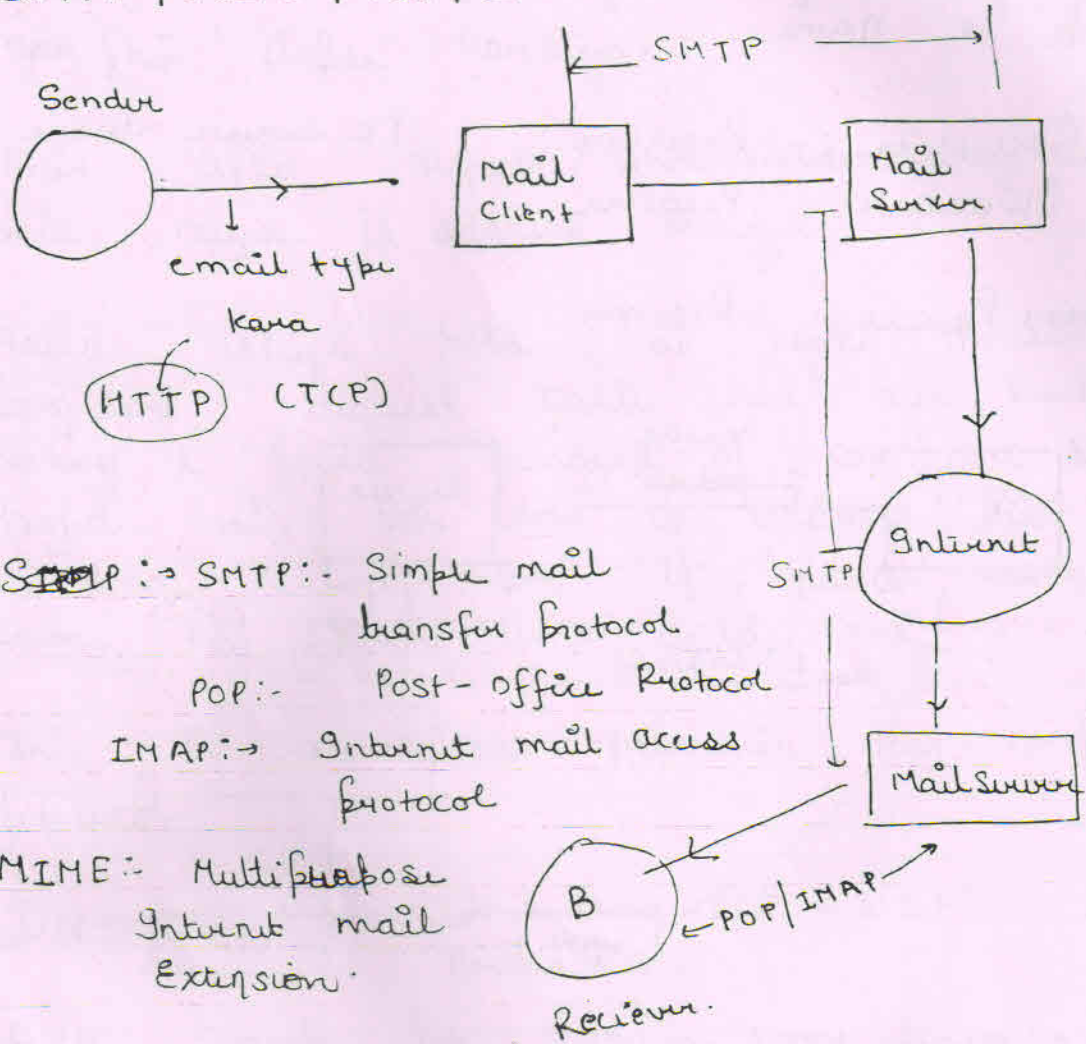 SMTP
Sender
Mail
Client
Mail
Server
email type
kara
HTTP (TCP)
Internet
SMTP
:→ SMTP:- Simple mail
transfer protocol
POP:- Post-office Protocol
IMAP:→ Internet mail access
protocol
Mail Server
MIME:- Multipurpose
Internet mail
Extension.
B
POP/IMAP
Reciever.